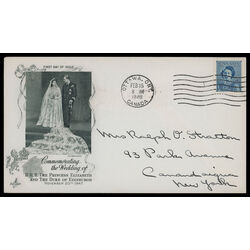 FIRST DAY OF ISSUE
OTTAWA, ONT.
FEB 16
1948
CANADA
Commemorating
the Wedding of
H.R.H. THE PRINCESS ELIZABETH
AND THE DUKE OF EDINBURGH
NOVEMBER 20TH 1947
Mrs Ralph D. Stratton
93 Parks Avenue
Canandaigua
New York